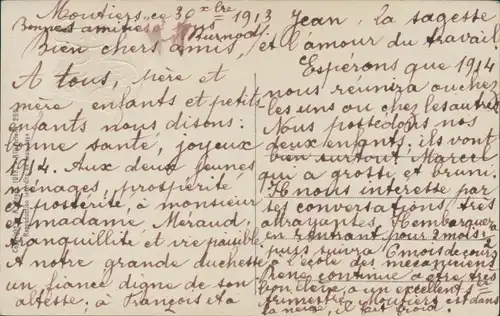 Moutiers, ce 30 xbre 1913
Bonnes amitiés
Bien chers amis,
A tous, père et
mère, enfants et petits-
enfants nous disons :
bonne santé, joyeux
1914. Aux deux jeunes
ménages, prospérité
et postérité, à monsieur
et madame Méraud.
tranquillité et vie paisible,
A notre grande duchesse
un fiancé digne de son
altesse ; à François et à
Jean, la sagesse
et l'amour du travail
Espérons que 1914
nous réunira ou chez
les uns ou chez les autres.
Nous possédons nos
deux enfants ; ils vont
bien surtout Marcel
qui a grossi et bruni.
Il nous intéresse par
ses conversations très
attrayantes, Il embarquera
en rentrant pour 2 mois 1/2
puis suivra 6 mois de cours
à l'école des mécaniciens
René continue à être très
bon élève, a un excellent 1er
trimestre. Moutiers est dans
la neige, il fait froid.